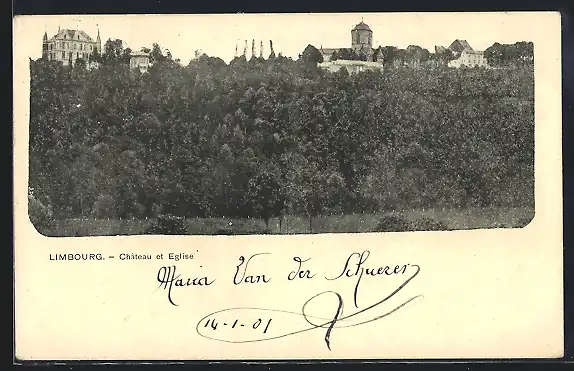 LIMBOURG. – Château et Eglise
Maria Van der Schuerer
14-1-01